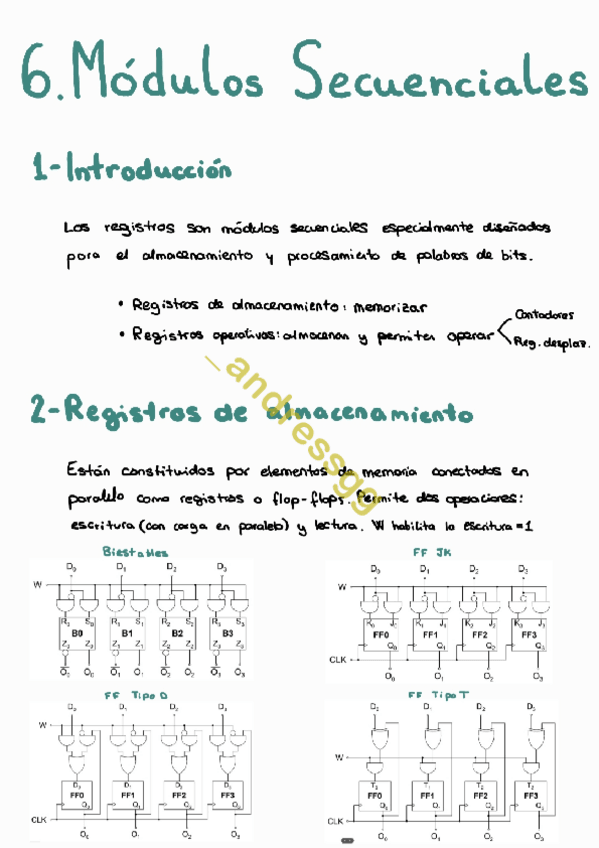 6. Módulos Secuenciales
1-Introducción
Los registros son módulos secuenciales especialmente diseñados
para el almacenamiento y procesamiento de palabras de bits.
• Registros de almacenamiento: memorizar
• Registros operativos: almacenan y permiten operar
Contadores
Reg. desplaz.
_andressgg
2-Registros de almacenamiento
Están constituidos por elementos de memoria conectados en
paralelo como registros o flop-flops. Permite dos operaciones:
escritura (con carga en paralelo) y lectura. W habilita la escritura = 1
Biestables
D0 D1 D2 D3
W
R0 S0 R1 S1 R2 S2 R3 S3
B0 B1 B2 B3
Z0 Z0 Z1 Z1 Z2 Z2 Z3 Z3
O0 O0 O1 O1 O2 O2 O3 O3
FF JK
D0 D1 D2 D3
W
FF0 FF1 FF2 FF3
Q0 Q1 Q2 Q3
CLK
O0 O1 O2 O3
FF Tipo D
D0 D1 D2 D3
W
D0 D1 D2 D3
FF0 FF1 FF2 FF3
Q0 Q1 Q2 Q3
CLK
O0 O1 O2 O3
FF Tipo T
W
FF0 FF1 FF2 FF3
CLK
O0 O1 O2 O3